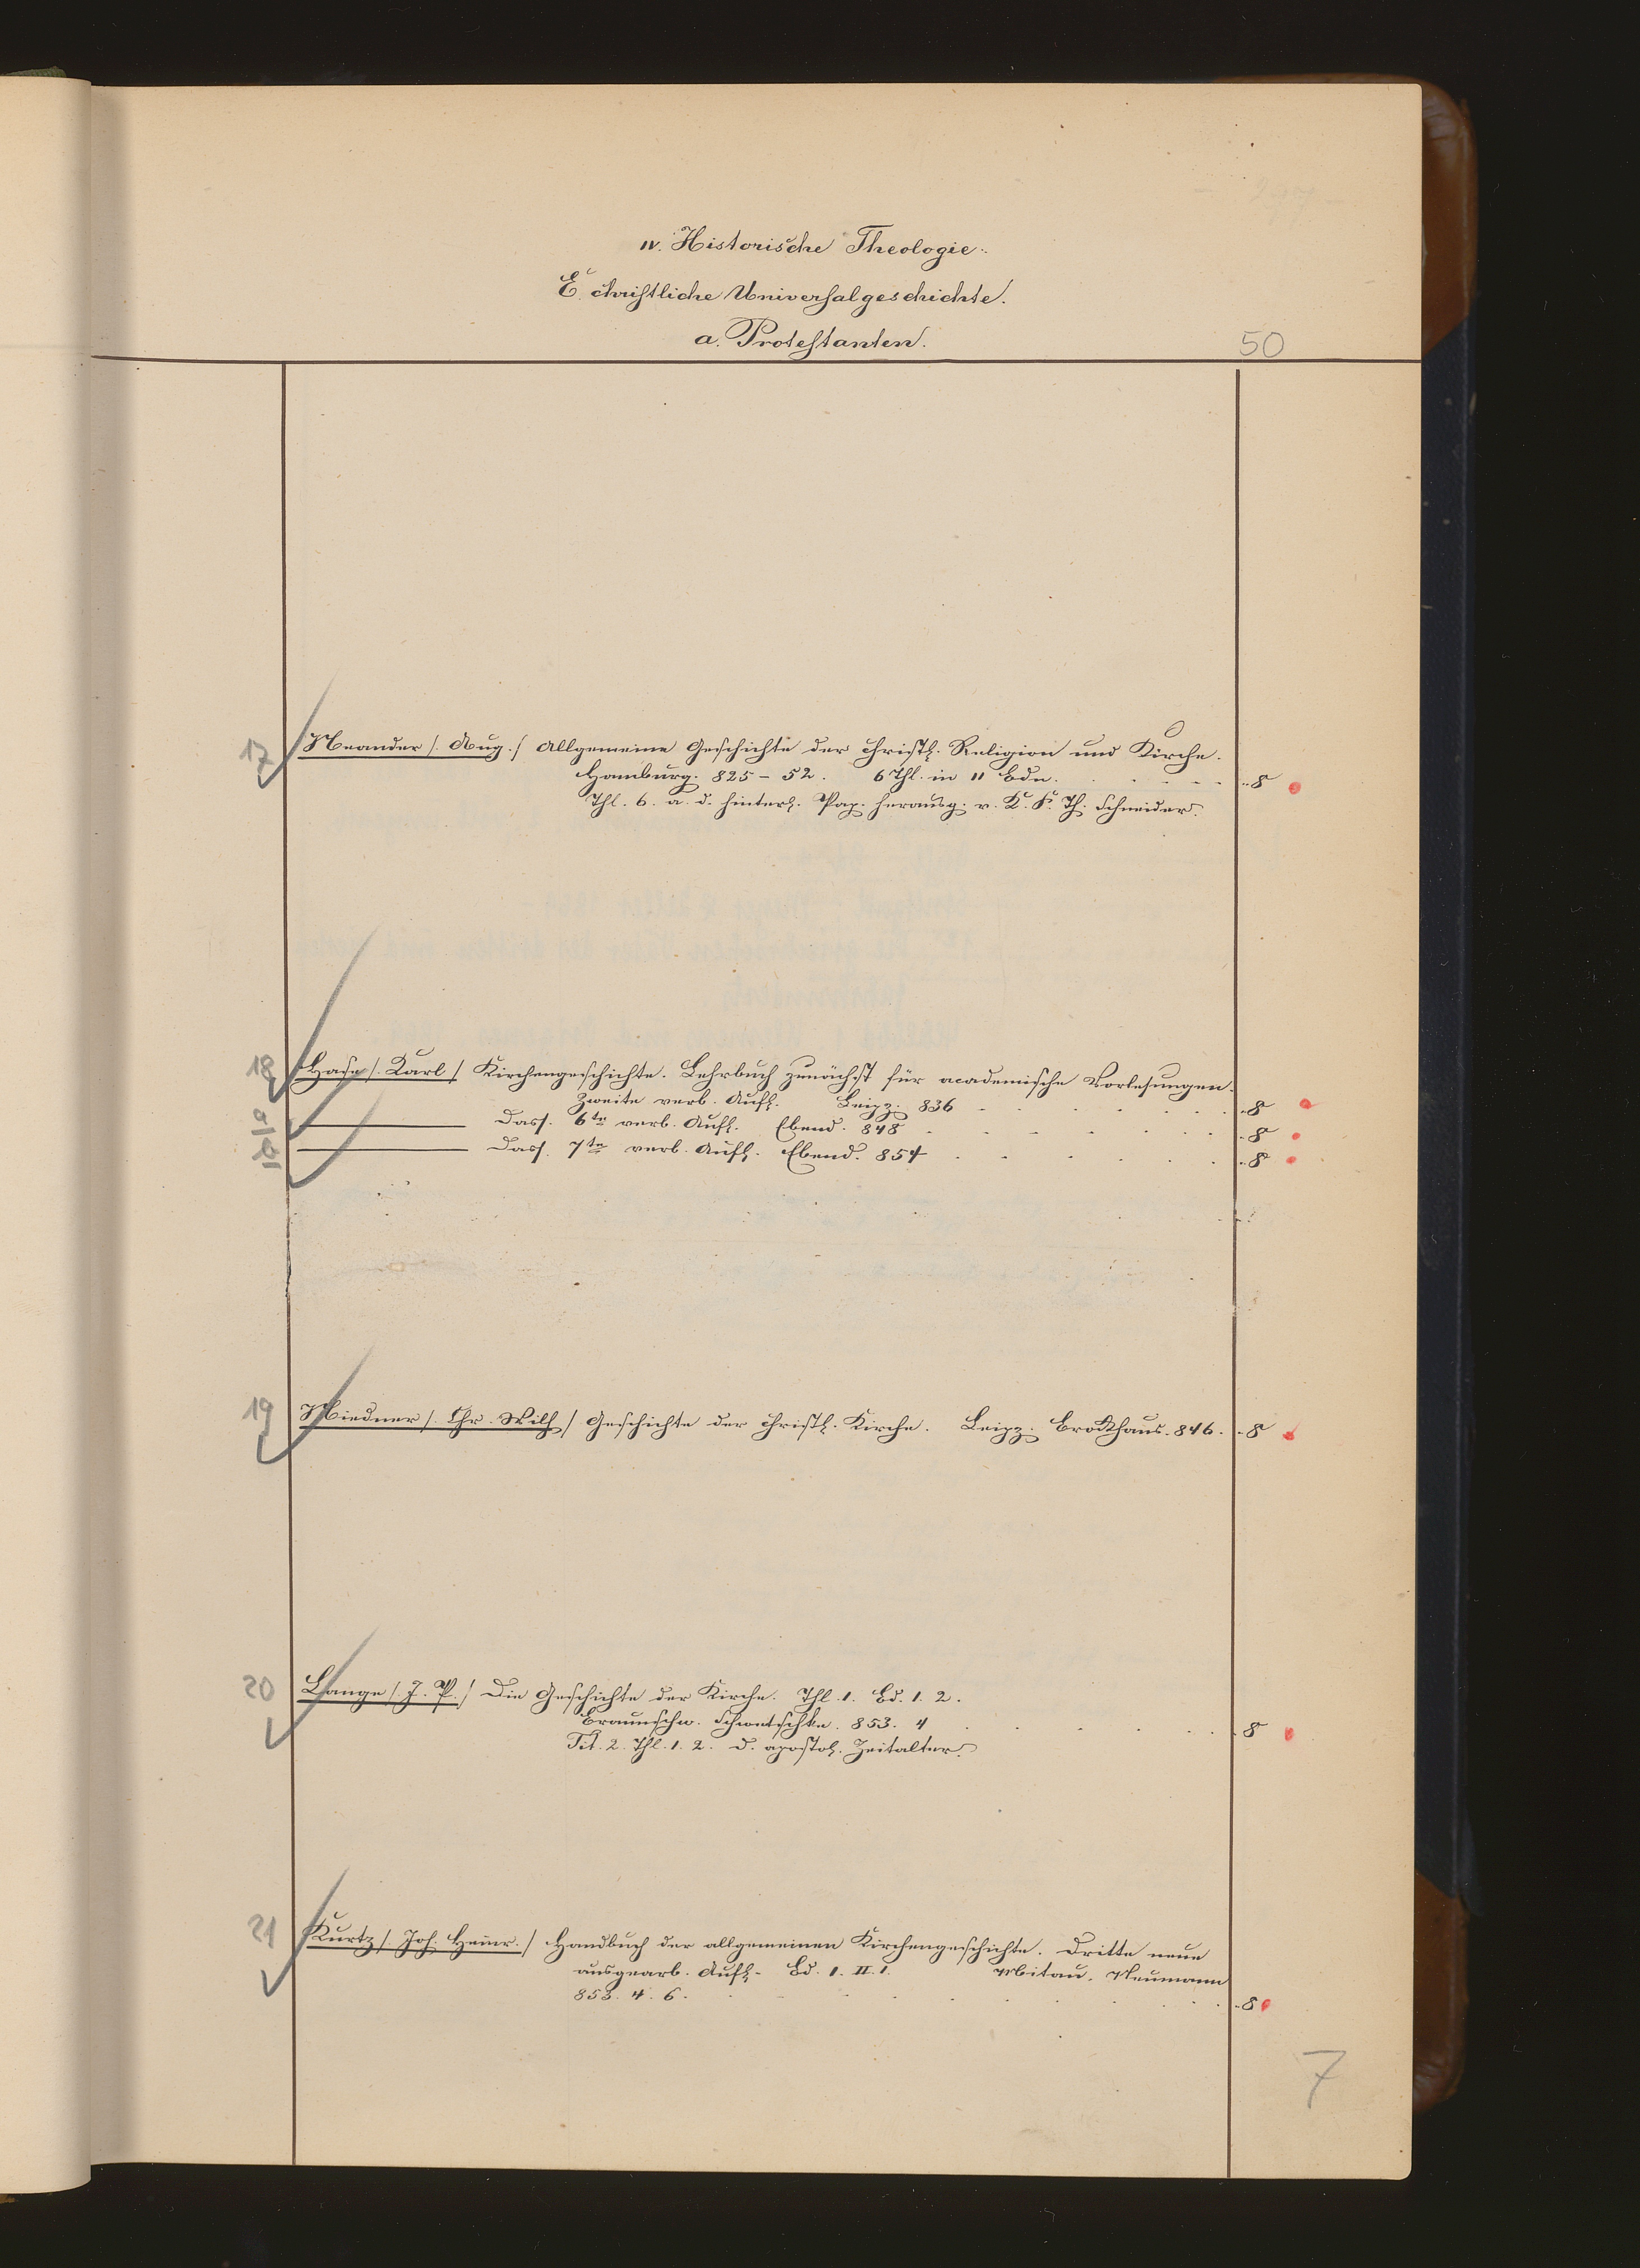 IV. Historische Theologie.
E. christliche Universalgeschichte.
a. Protestanten.
50
17 Neander /. Aug./ Allgemeine Geschichte der christl. Religion und Kirche.
Hamburg. 825 - 52. 6 Thl. in 11 Bdn. 8
Thl. 6. a. d. hinterl. Pap. herausg. v. K. F. Th. Schneider.
18 Hase /. Karl / Kirchengeschichte. Lehrbuch zunächst für academische Vorlesungen.
Zweite verb. Aufl. Leipz. 836 8
a Dass. 6te verb. Aufl. Ebend. 848 8
Dass. 7te verb. Aufl. Ebend. 854 8
19 Niedner /. Chr. Wilh / Geschichte der christl. Kirche. Leipz. Brockhaus. 846. 8
20 Lange /. J. P./ Die Geschichte der Kirche. Thl. 1. Bd. 1. 2.
Braunschw. Schwetschke. 853. 4 8
Tit. 2. Thl. 1. 2. d. apostol. Zeitalter.
21 Kurtz /. Joh. Heinr./ Handbuch der allgemeinen Kirchengeschichte. Dritte neue
ausgearb. Aufl. Bd. 1. II. 1. Mitau. Neumann
853. 4. 6. 8
7